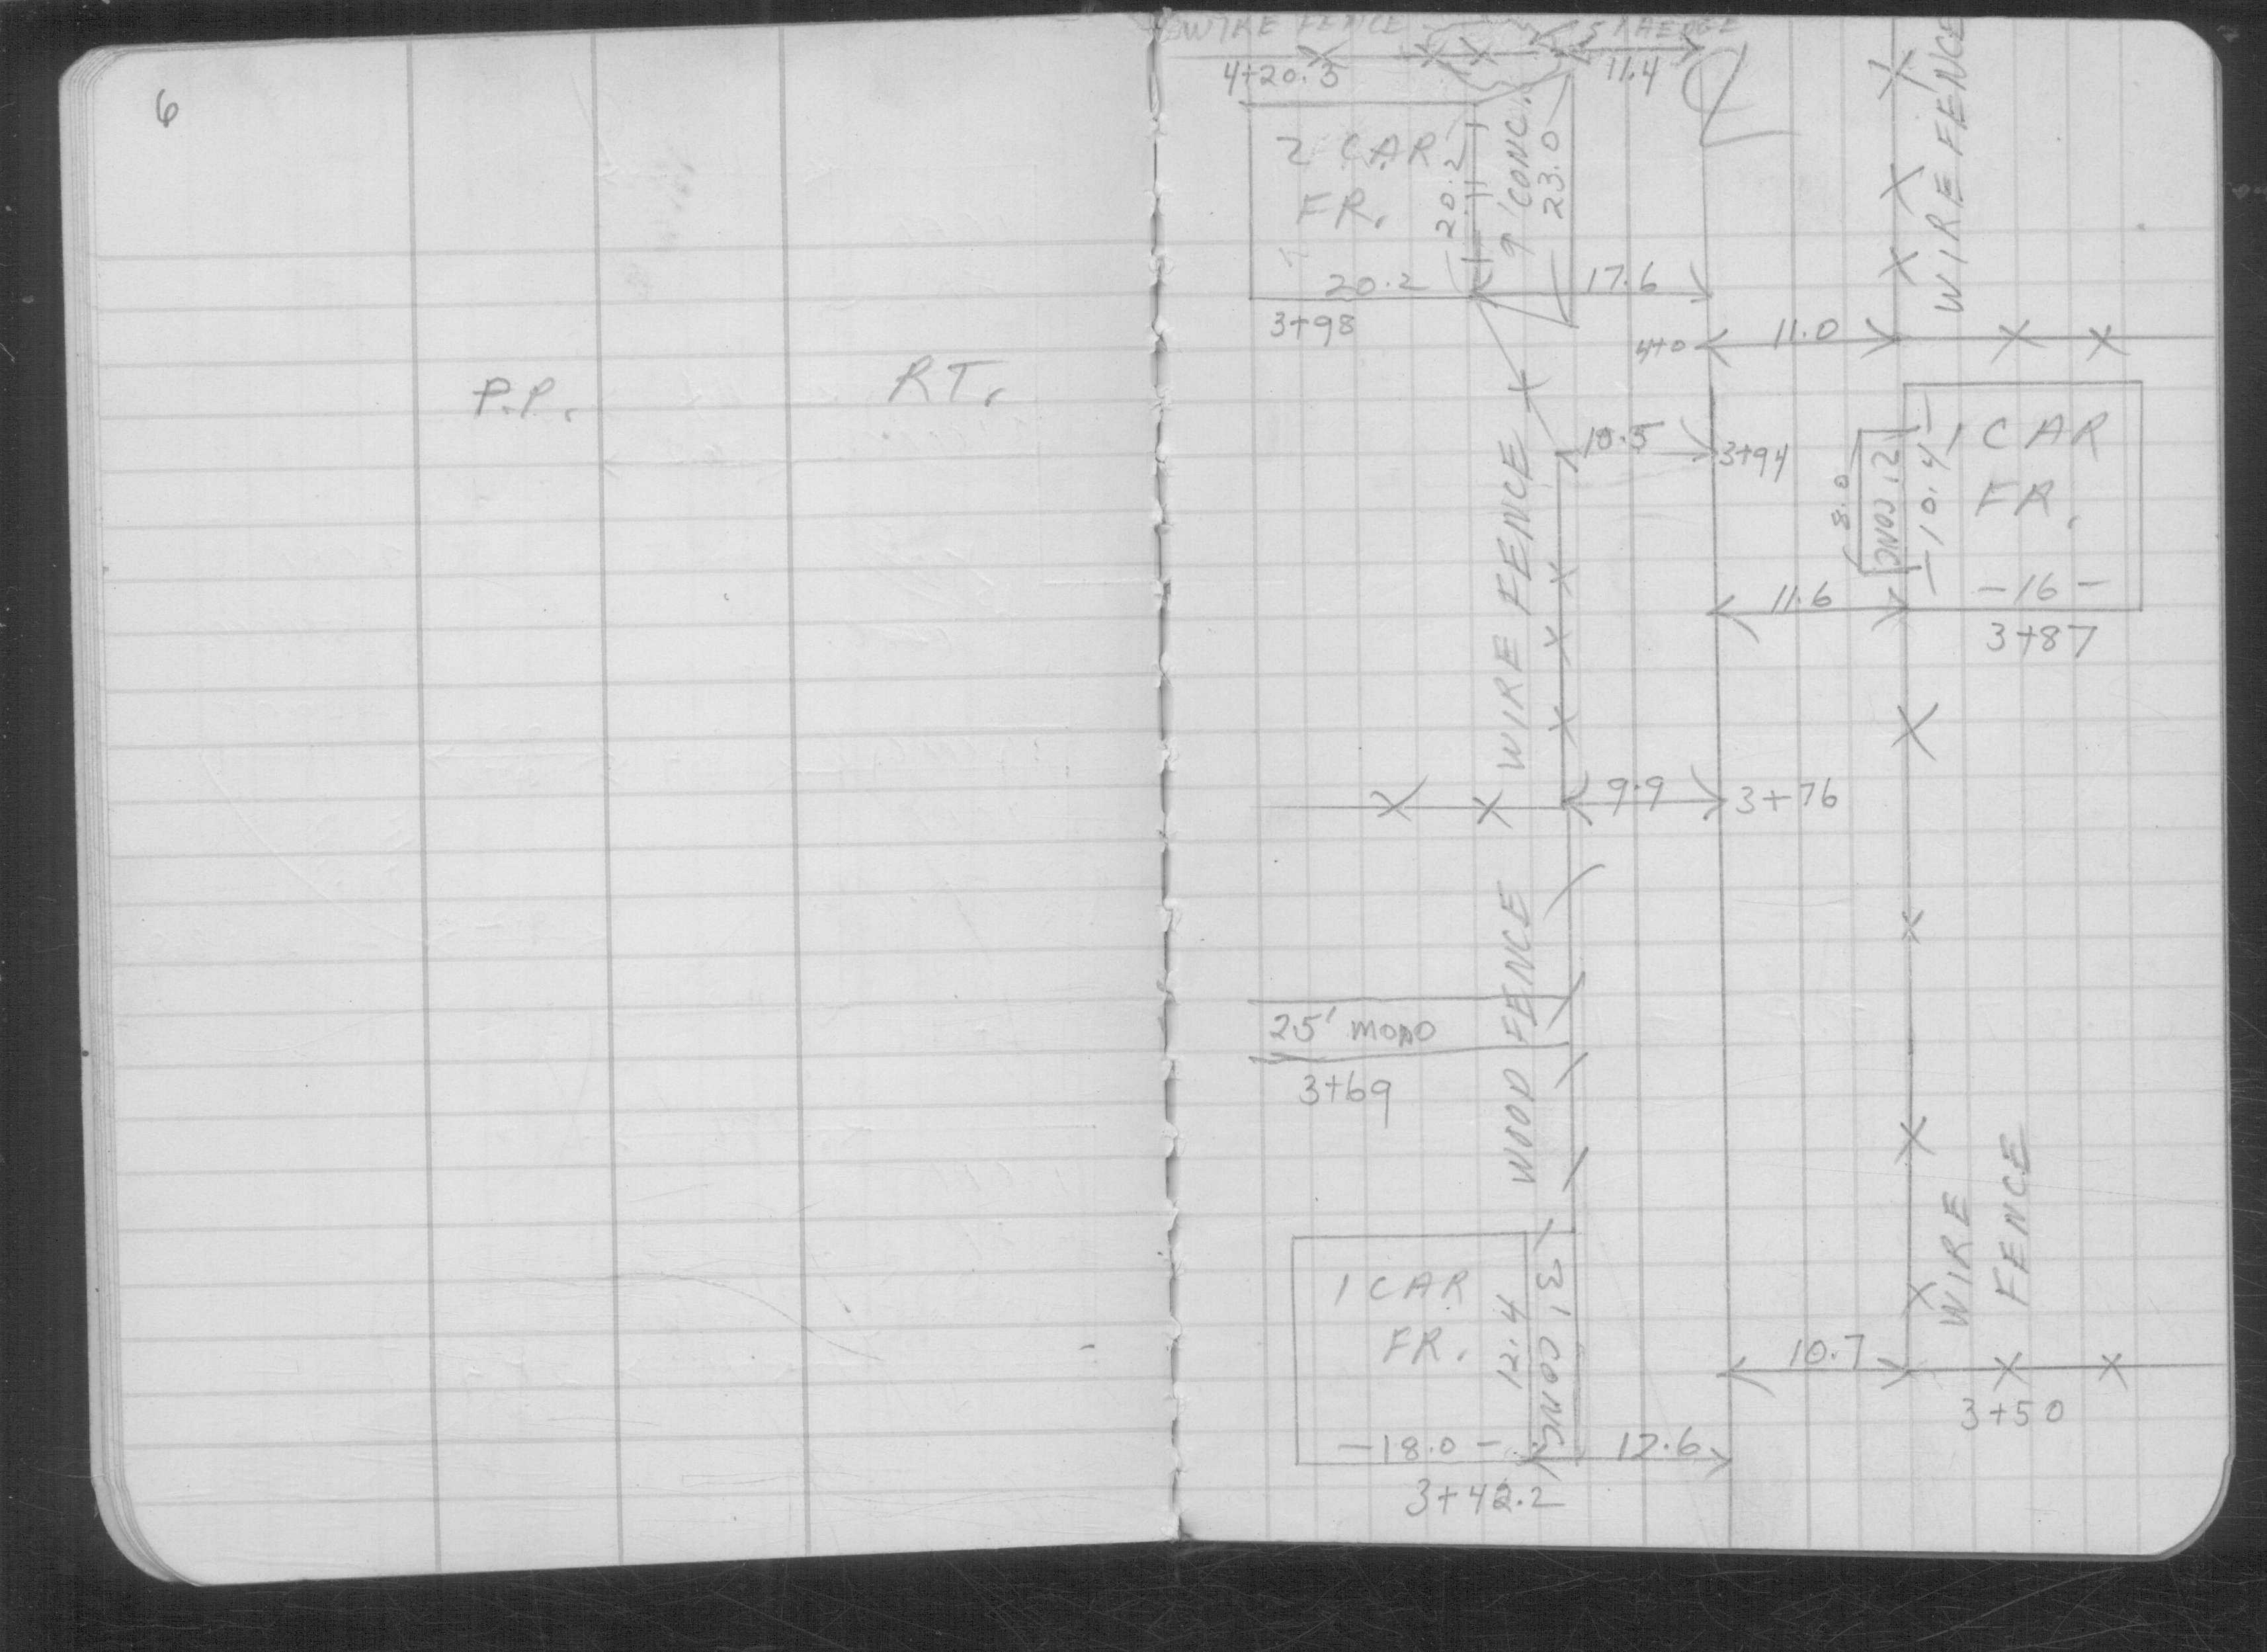 6
P.P.
RT.
WIRE FENCE
HEDGE
4+20.3
11.4
WIRE FENCE
2 CAR
FR.
20.2
9' CONC.
23.0
20.2
17.6
3+98
4+0
11.0
10.5
3+94
WIRE FENCE
1 CAR
FR.
10.4
12' CONC
8.0
-16-
11.6
3+87
9.9
3+76
WOOD FENCE
2.5' MONO
3+69
WIRE
FENCE
1 CAR
FR.
12.4
3' CONC
-18.0-
12.6
3+42.2
10.7
3+50